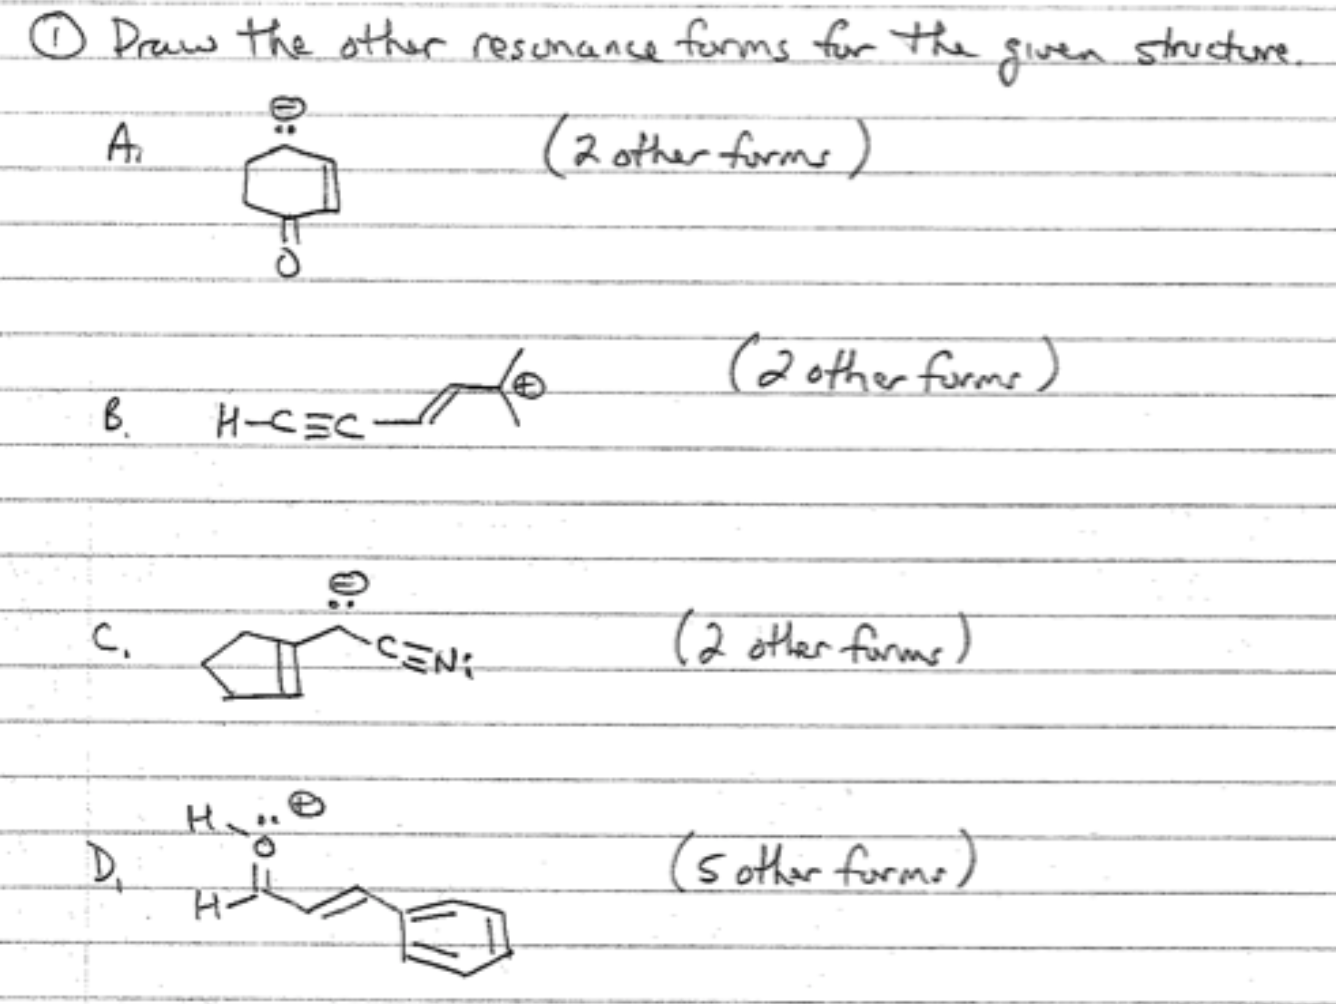 ① Draw the other resonance forms for the given structure.
A. ⊖
··
(2 other forms)
O
B. H-C≡C ⊕ (2 other forms)
C. ⊖
··
C≡N: (2 other forms)
D. H ·· ⊕
O
H
(5 other forms)